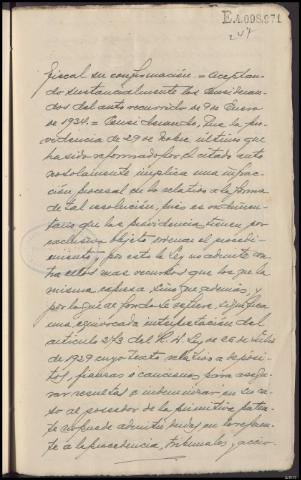 E4.098.971
247
fiscal su confirmación. = Aceptan-
do sustancialmente los Consideran-
dos del auto recurrido de 9 de Enero
de 1934. = Considerando, que la pro-
videncia de 29 de Nobre. último que
ha sido reformado por el citado auto
no solamente implica una infrac-
ción procesal en lo relativo a la forma
de tal resolución, pues es rudimen-
tario que las providencias tienen por
exclusivo objeto ordenar el procedi-
miento y por esto la Ley no admite con-
tra ellos mas recursos que los que la
misma expresa, sino que además, y
por lo que al fondo se refiere, significa
una equivocada interpretación del
artículo 273 del R. D. Ley de 26 de Julio
de 1929 cuyo texto, relativo a depósi-
tos, fianzas o cauciones para asegu-
rar resultas o indemnizar en su ca-
so al poseedor de la primitiva paten-
te no puede admitir dudas en lo referen-
te a la procedencia, tribunales, y acció-